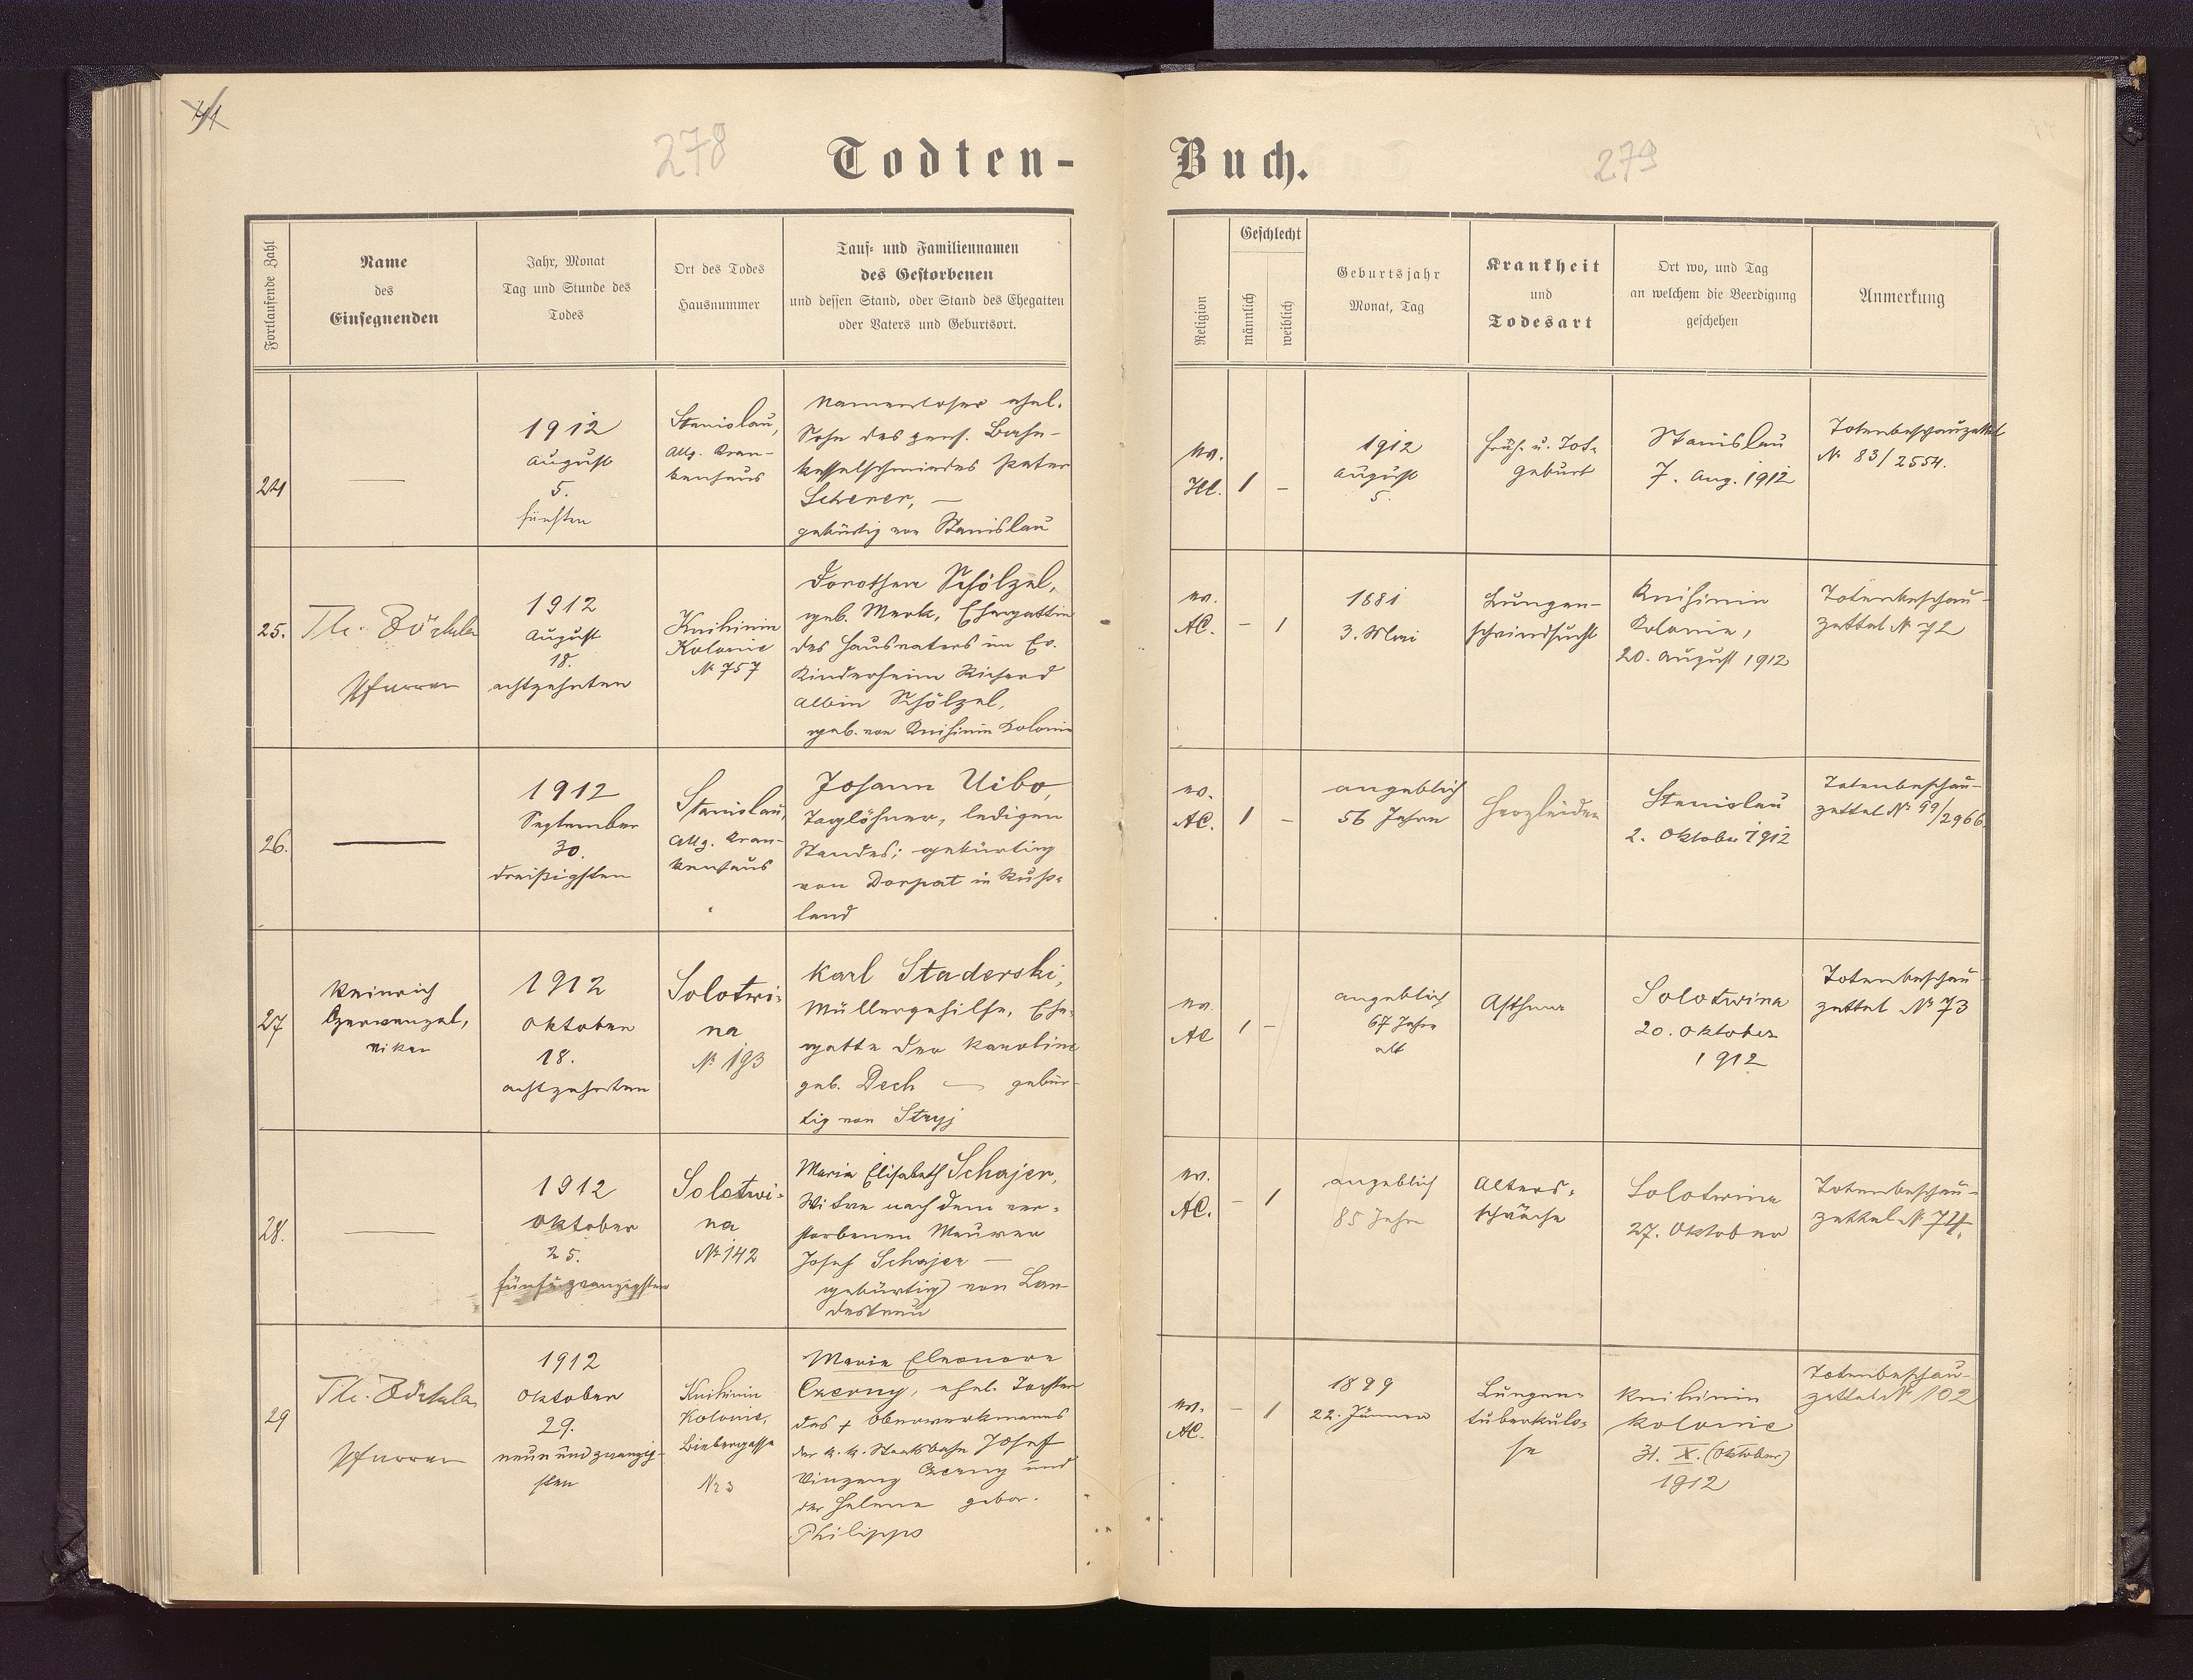 41
278
Todten-
Buch.
279
Fortlaufende Zahl
Name
des
Einsegnenden
Jahr, Monat
Tag und Stunde des
Todes
Ort des Todes
Hausnummer
Tauf- und Familiennamen
des Gestorbenen
und dessen Stand, oder Stand des Ehegatten
oder Vaters und Geburtsort.
Religion
Geschlecht
männlich
weiblich
Geburtsjahr
Monat, Tag
Krankheit
und
Todesart
Ort wo, und Tag
an welchem die Beerdigung
geschehen
Anmerkung
24
—
1912
August
5.
fünften
Stanislau,
Allg. Kran-
kenhaus
Namenloser ehel.
Sohn des pens. Bahn-
kesselschmiedes Peter
Scherer, —
gebürtig von Stanislau
ev.
HC.
1
–
1912
August
5.
Früh- u. Tot-
geburt
Stanislau
7. Aug. 1912
Totenbeschauzettel
№ 83/2554.
25.
Th. Zöckler
Pfarrer
1912
August
18.
achtzehnten
Knihinin
Kolonie
№ 757
Dorothea Schölzel,
geb. Merk, Ehegattin
des Hausvaters im Ev.
Kinderheim Richard
Albin Schölzel,
geb. von Knihinin Kolonie
ev.
AC.
–
1
1881
3. Mai
Lungen-
schwindsucht
Knihinin
Kolonie,
20. August 1912
Totenbeschau-
zettel № 72
26.
—
1912
September
30.
dreißigsten
Stanislau,
Allg. Kran-
kenhaus
Johann Uibo,
Taglöhner, ledigen
Standes; gebürtig
von Dorpat in Ruß-
land
ev.
AC.
1
–
angeblich
56 Jahre
Herzleiden
Stanislau
2. Oktober 1912
Totenbeschau-
zettel № 99/2966.
27
Heinrich
Czerwenzel,
Vikar
1912
Oktober
18.
achtzehnten
Solotwi-
na
№ 193
Karl Staderski,
Müllergehilfe, Ehe-
gatte der Karoline
geb. Dech — gebür-
tig von Stryj
ev.
AC
1
–
angeblich
67 Jahre
alt
Asthma
Solotwina
20. Oktober
1912
Totenbeschau-
zettel № 73
28.
—
1912
Oktober
25.
fünfu.zwanzigsten
Solotwi-
na
№ 142
Maria Elisabeth Schajer,
Witwe nach dem ver-
storbenen Maurer
Josef Schajer —
gebürtig von Lan-
destreu
ev.
AC.
–
1
angeblich
85 Jahre
Alters-
schwäche
Solotwina
27. Oktober
Totenbeschau-
zettel № 74.
29
Th. Zöckler
Pfarrer
1912
Oktober
29.
neunundzwanzig-
sten
Knihinin
Kolonie,
Biebergasse
Nr 3
Maria Eleonore
Czerny, ehel. Tochter
des + Oberwerkmanns
der k. k. Staatsbahn Josef
Vinzenz Czerny und
der Helene gebor.
Philipps
ev.
AC.
–
1
1899
22. Jänner
Lungen-
tuberkulo-
se
Knihinin
Kolonie
31. X. (Oktober)
1912
Totenbeschau-
zettel № 102